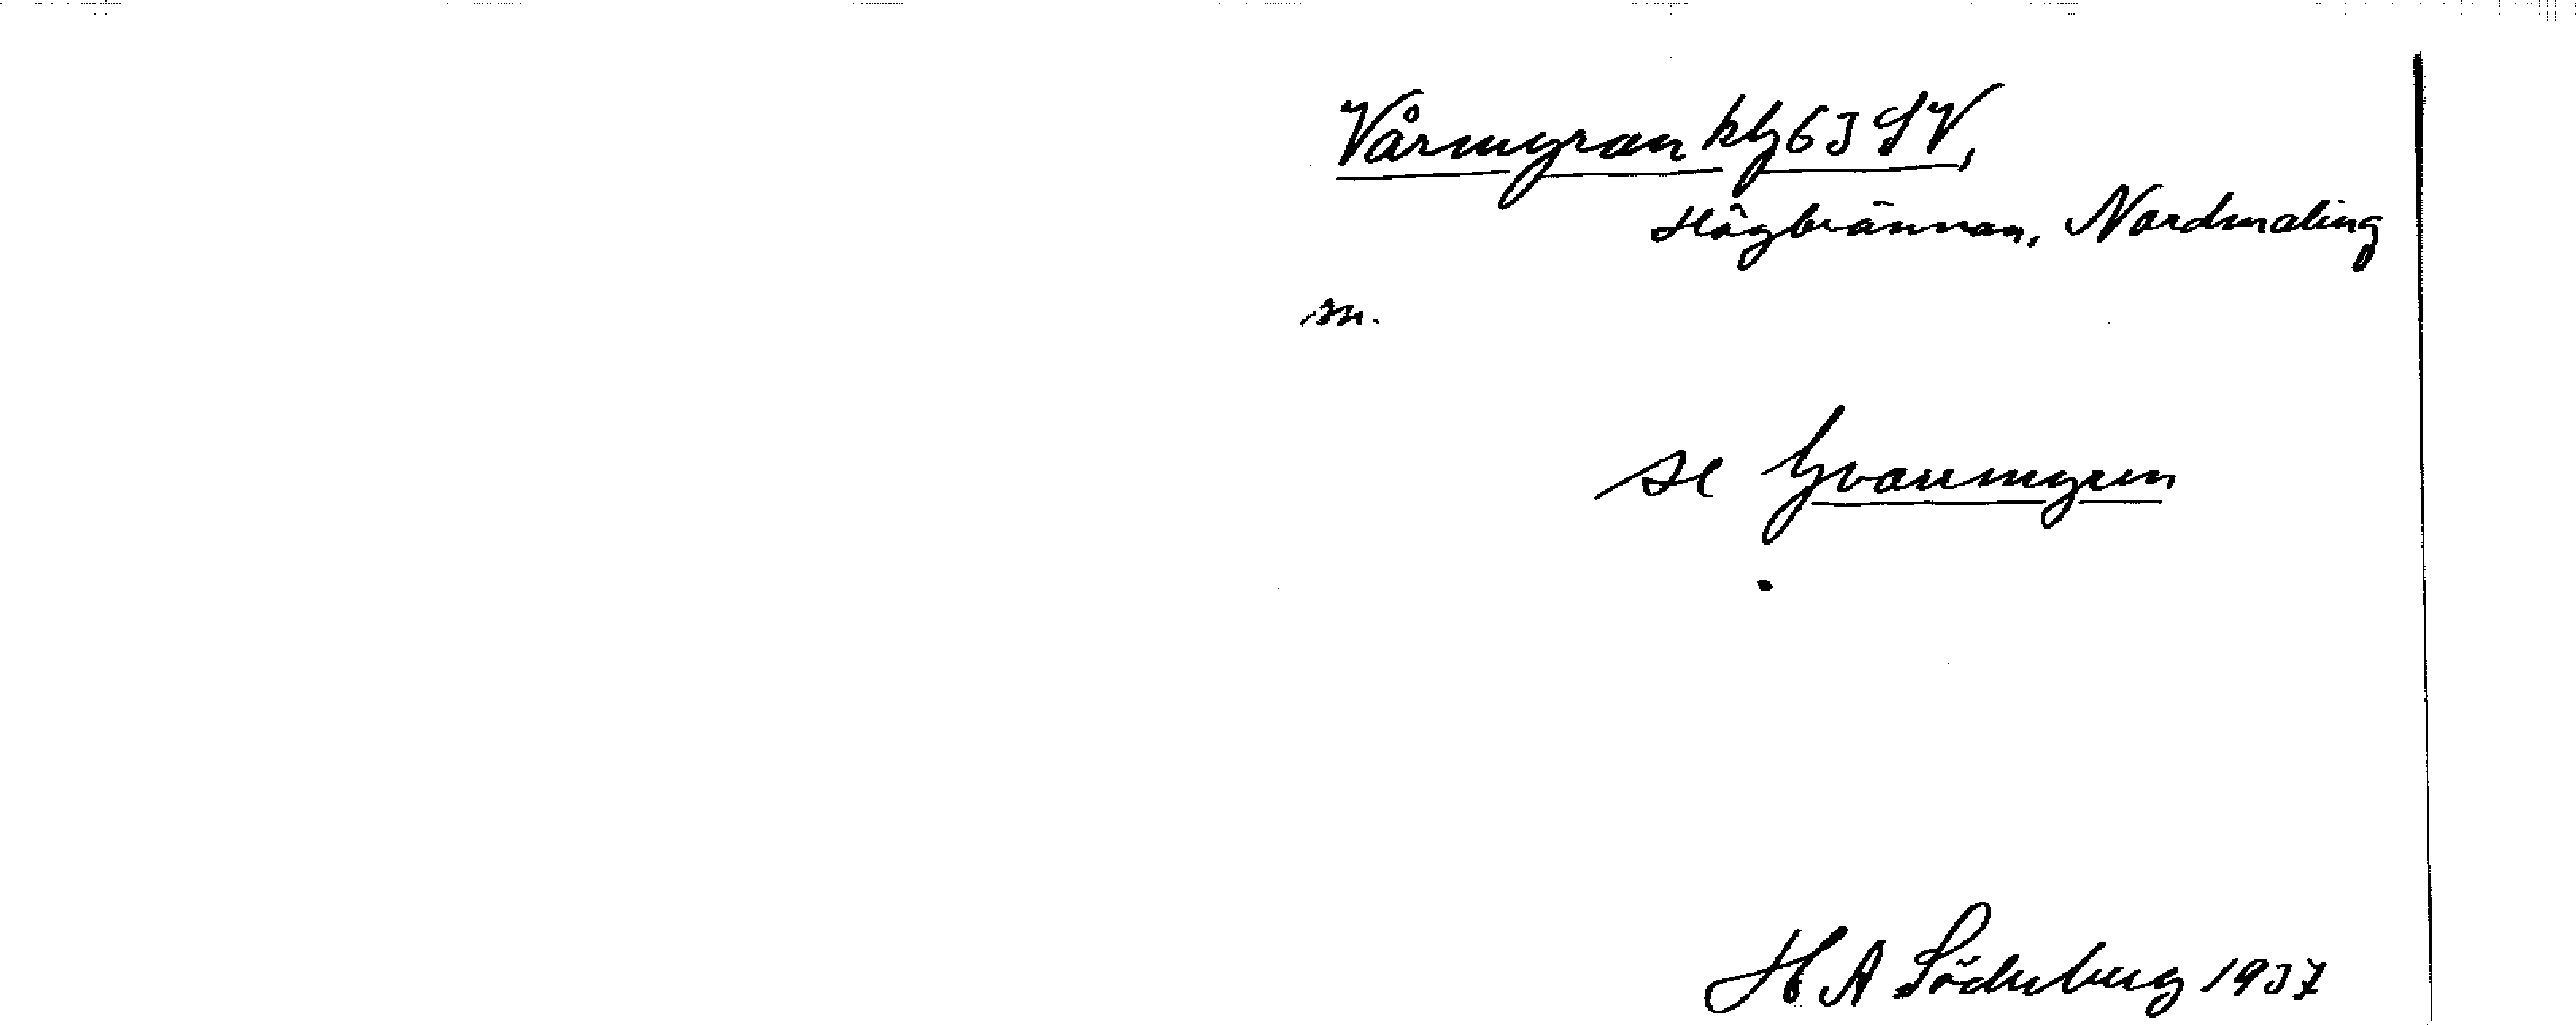 Vårmyran kbj 63 SV,
Högbrännan, Nordmaling
sn.
se Yvarmyren
H A Söderberg 1937